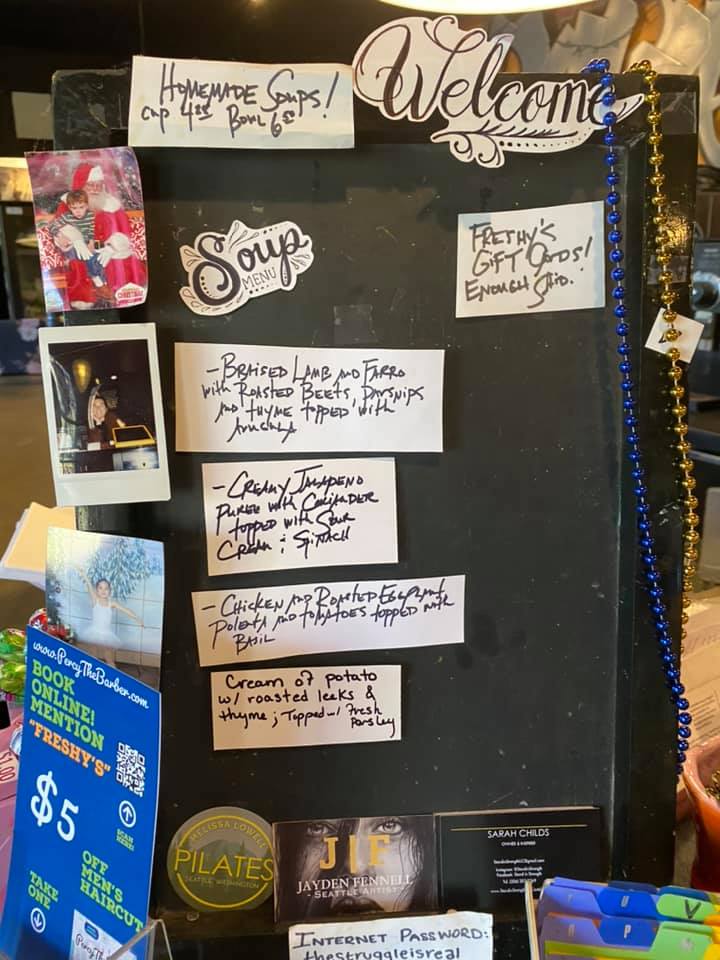 HOMEMADE SOUPS!
CUP 4²⁵ BOWL 6⁵⁰
Welcome
Soup
MENU
FRESHY'S
GIFT CARDS!
ENOUGH SAID.
- BRAISED LAMB AND FARRO
WITH ROASTED BEETS, PARSNIPS
AND THYME TOPPED WITH
ARUGULA
- CREAMY JALAPENO
PUREE WITH CORIANDER
TOPPED WITH SOUR
CREAM & SPINACH
- CHICKEN AND ROASTED EGGPLANT
POLENTA AND TOMATOES TOPPED WITH
BASIL
Cream of potato
w/ roasted leeks &
thyme; Topped w/ Fresh
Parsley
www.PercyTheBarber.com
BOOK
ONLINE!
MENTION
"FRESHY'S"
$5
SCAN
HERE!
OFF
MEN'S
HAIRCUT
TAKE
ONE
MELISSA LOWELL
PILATES
SEATTLE, WASHINGTON
J|F
JAYDEN FENNELL
- SEATTLE ARTIST -
SARAH CHILDS
INTERNET PASSWORD:
thestruggleisreal